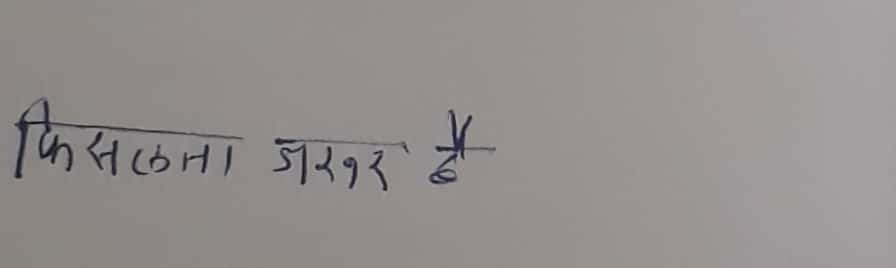 फिसलना जरुर है